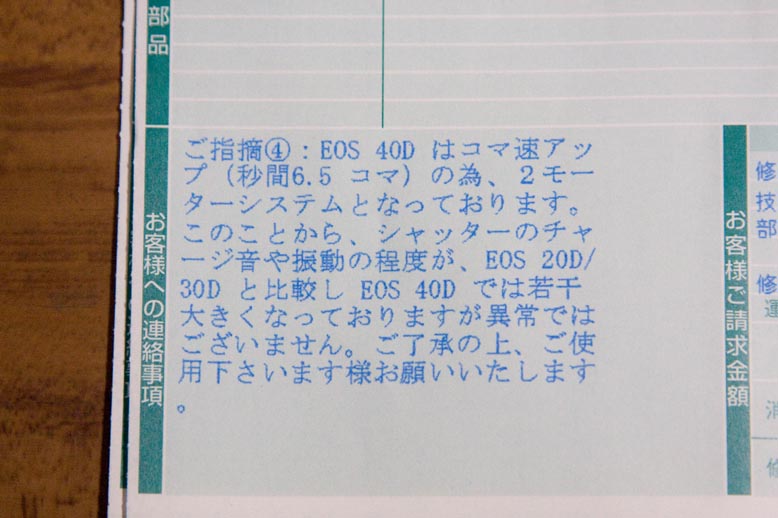 部品
お客様への連絡事項
ご指摘④：EOS 40D はコマ速アッ
プ（秒間6.5 コマ）の為、２モー
ターシステムとなっております。
このことから、シャッターのチャ
ージ音や振動の程度が、EOS 20D/
30D と比較し EOS 40D では若干
大きくなっておりますが異常では
ございません。ご了承の上、ご使
用下さいます様お願いいたします
。
お客様ご請求金額
修
技
部
修
消